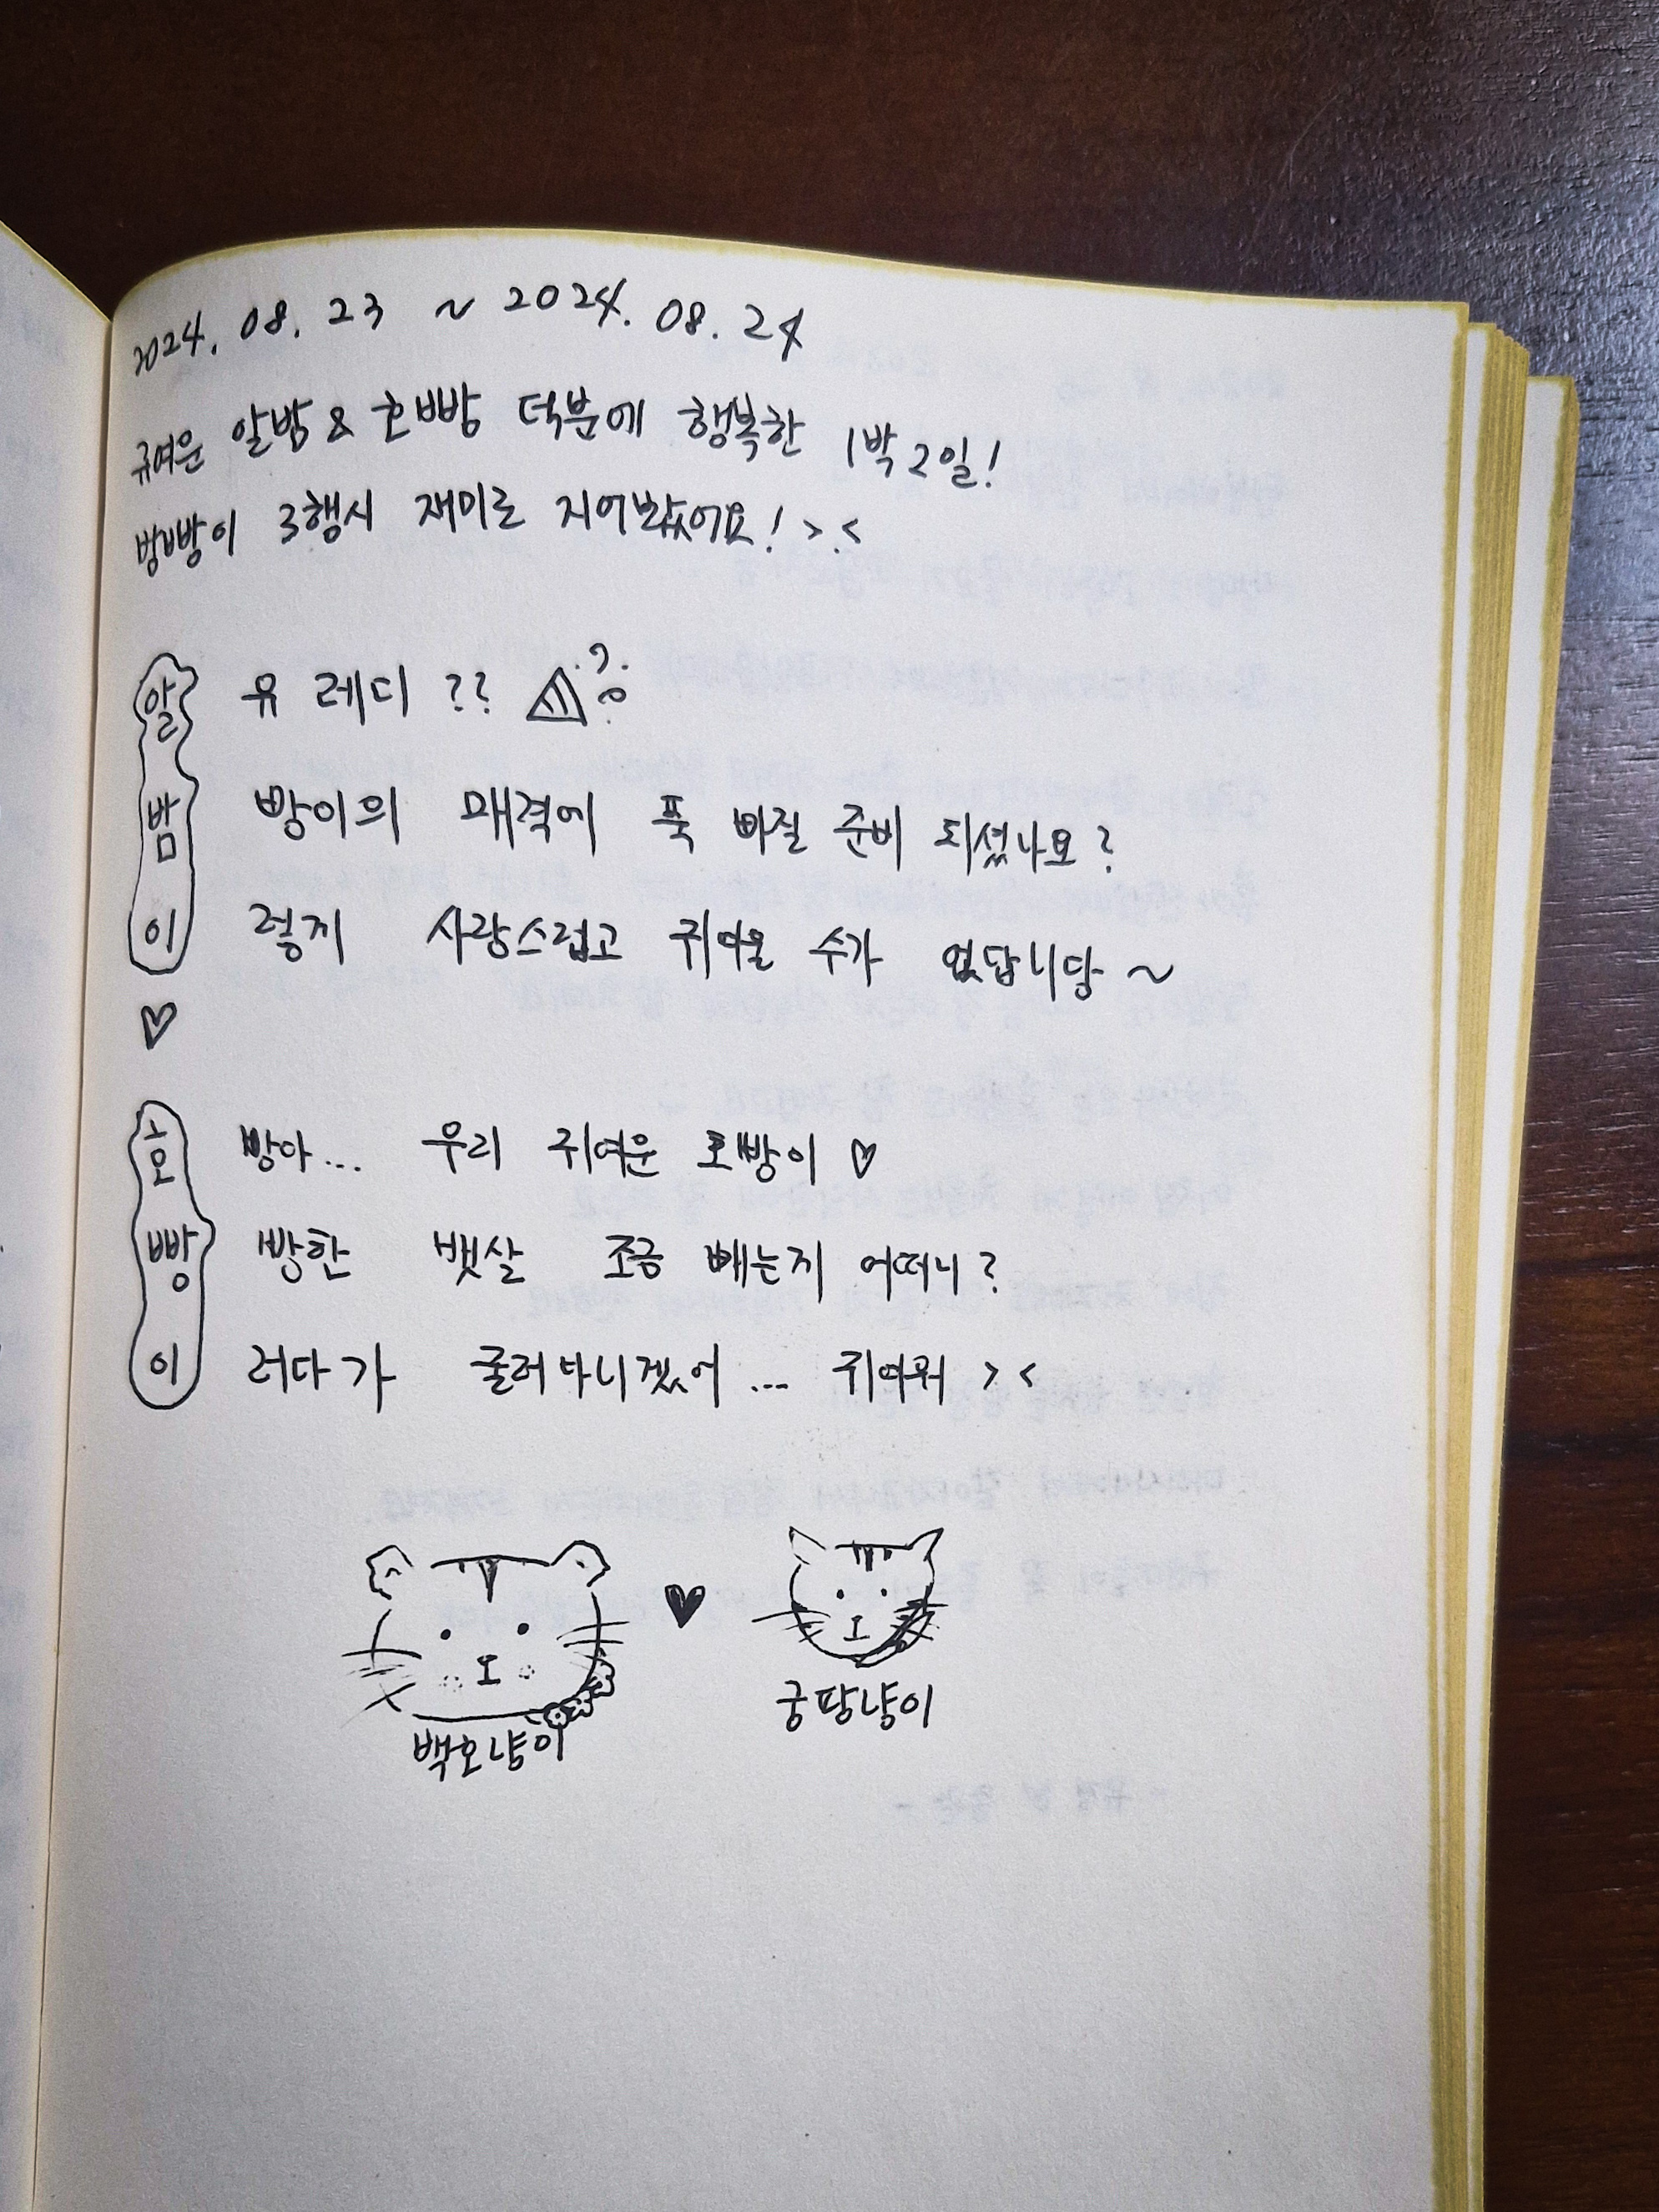 2024. 08. 23 ~ 2024. 08. 24
귀여운 알밤 & 호빵 덕분에 행복한 1박 2일!
밤빵이 3행시 재미로 지어봤어요! >.<
알 유 레디 ??
밤 빵이의 매력에 푹 빠질 준비 되셨나요?
이 렇게 사랑스럽고 귀여울 수가 없답니당 ~
♡
호 빵아... 우리 귀여운 호빵이 ♡
빵 빵한 뱃살 조금 빼는게 어떠니?
이 러다가 굴러다니겠어 ... 귀여워 > <
♥
백호냥이 궁팡냥이